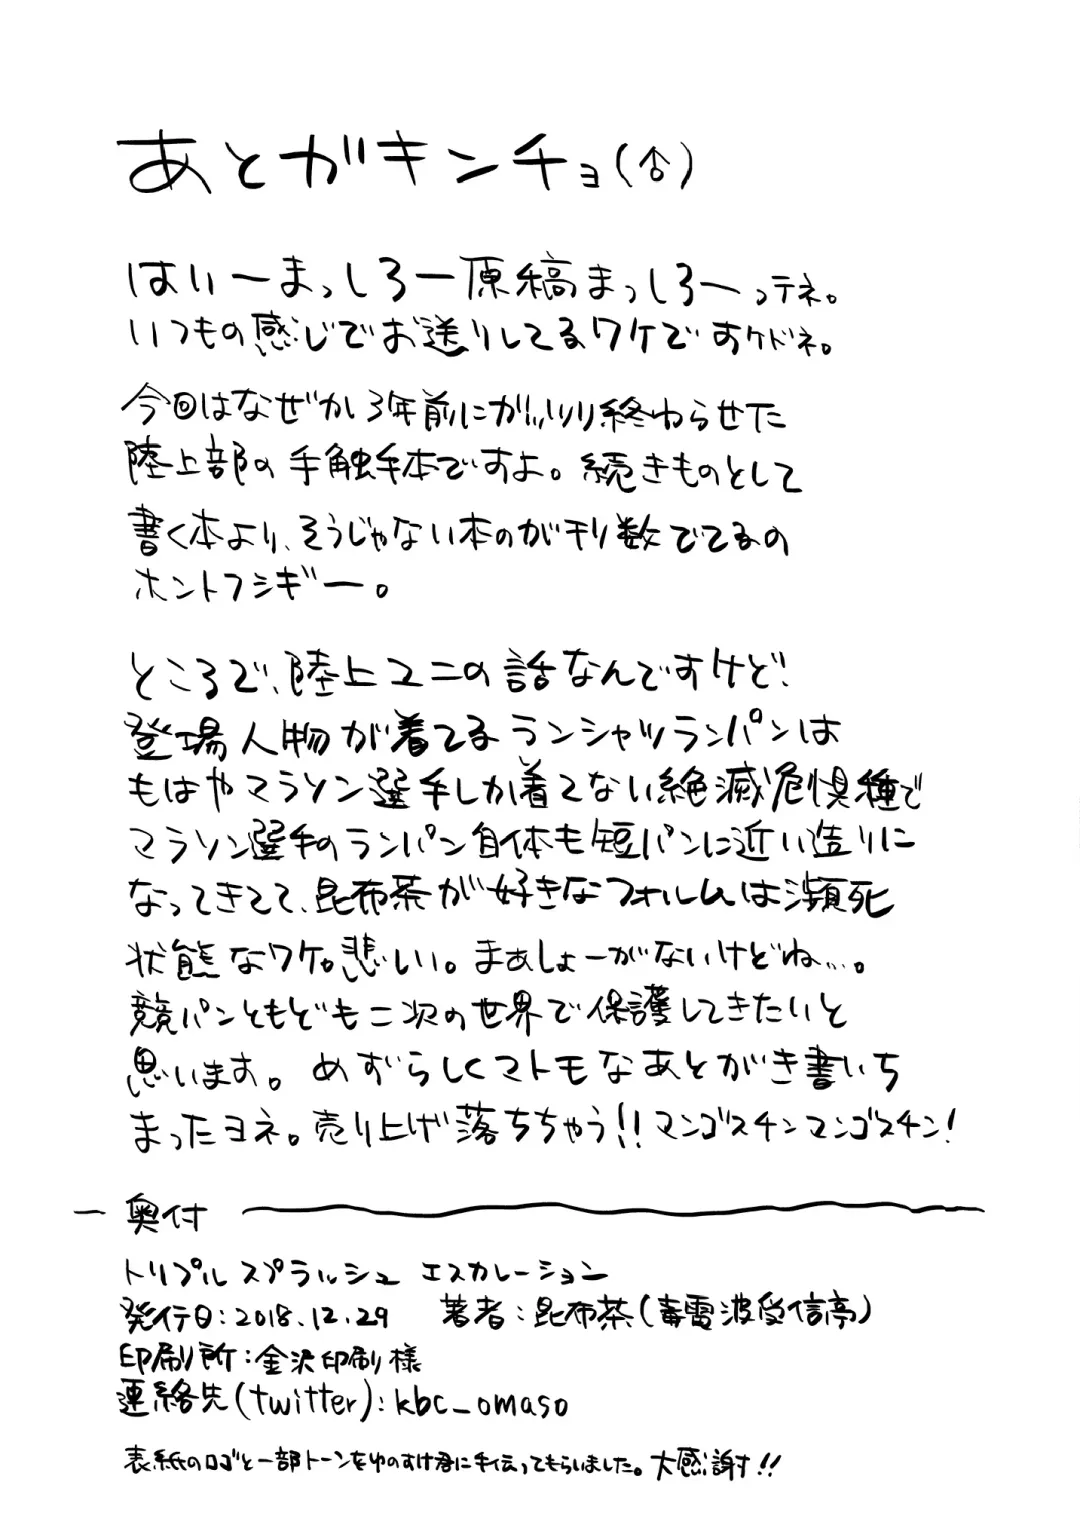 あとがキンチョ(↑)
はいーまっしろー原稿まっしろーってネ。
いつもの感じでお送りしてるワケですケドネ。
今回はなぜか3年前にガッツリ終わらせた
陸上部の手触手本ですよ。続きものとして
書く本より、そうじゃない本のが刊数でてるの
ホントフシギー。
ところで、陸上ユニの話なんですけど!
登場人物が着てるランシャツランパンは
もはやマラソン選手しか着てない絶滅危惧種で
マラソン選手のランパン自体も短パンに近い造りに
なってきてて、昆布茶が好きなフォルムは瀕死
状態なワケ。悲しい。まぁしょーがないけどね…。
競パンともども二次の世界で保護してきたいと
思います。めずらしくマトモなあとがき書いち
まったヨネ。売り上げ落ちちゃう!!マンゴスチンマンゴスチン!
ー 奥付
トリプルスプラッシュ エスカレーション
発行日:2018.12.29 著者:昆布茶(毒電波受信亭)
印刷所:金沢印刷様
連絡先(twitter):kbc_omaso
表紙のロゴと一部トーンをゆのすけ君に手伝ってもらいました。大感謝!!